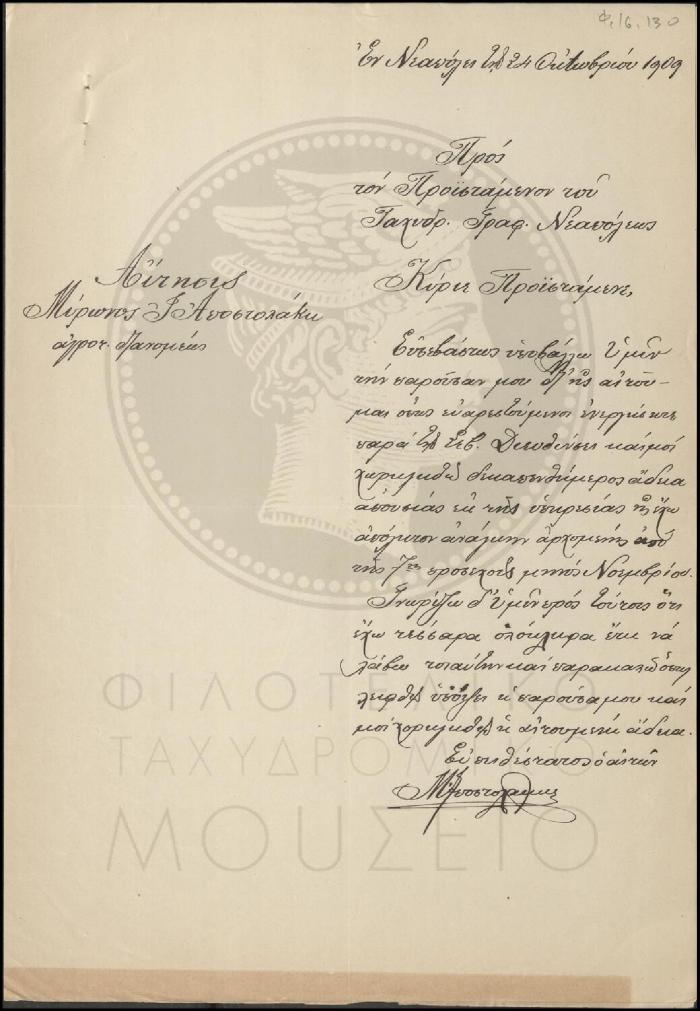 Φ.16.130
Ἐν Νεαπόλει τῇ 24 Ὀκτωβρίου 1909
Πρός
τόν Προϊστάμενον τοῦ
Ταχυδρ. Γραφ. Νεαπόλεως
Αἴτησις
Μύρωνος Γ Ἀποστολάκη
ἀγροτ. διανομέως
Κύριε Προϊστάμενε,
Εὐσεβάστως ὑποβάλλω Ὑμῖν
τήν παροῦσαν μου δι' ἧς αἰτοῦ-
μαι ὅπως εὐαρεστούμενοι ἐνεργήσητε
παρά τῇ Σεβ. Διευθύνσει καί μοί
χορηγηθῇ δεκαπενθήμερος ἄδεια
ἀπουσίας ἐκ τῆς ὑπηρεσίας ἧς ἔχω
ἀπόλυτον ἀνάγκην ἀρχομένης ἀπό
τῆς 7ης προσεχοῦς μηνός Νοεμβρίου.
Γνωρίζω δ' Ὑμῖν πρός τούτοις ὅτι
ἔχω τέσσαρα ὁλόκληρα ἔτη νά
λάβω τοιαύτην καί παρακαλῶ ὅπως
ληφθῇ ὑπόψει ἡ παροῦσα μου καί
μοί χορηγηθῇ ἡ αἰτουμένη ἄδεια.
Εὐπειθέστατος ὁ αἰτῶν
Μ. Ἀποστολάκης
ΦΙΛΟΤΕΛΙΚΟ
ΤΑΧΥΔΡΟΜΙΚΟ
ΜΟΥΣΕΙΟ